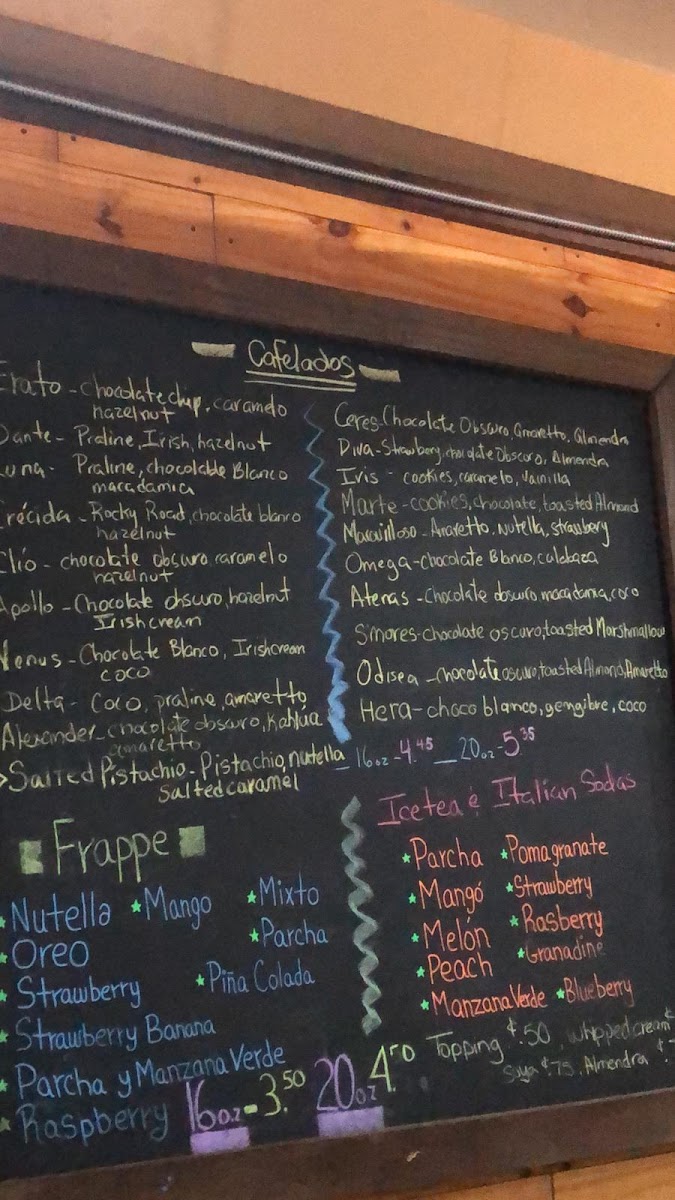 Cafelados
Erato - chocolate chip, caramelo
hazelnut
Dante - Praline, Irish, hazelnut
Luna - Praline, chocolate Blanco
macadamia
Crécida - Rocky Road, chocolate blanco
hazelnut
Clío - chocolate obscuro, caramelo
hazelnut
Apollo - Chocolate obscuro, hazelnut
Irish cream
Venus - Chocolate Blanco, Irishcream
coco
Delta - Coco, praline, amaretto
Alexander - chocolate obscuro, Kahlúa
amaretto
Salted Pistachio - Pistachio, nutella
Salted caramel
Ceres - Chocolate Obscuro, Amaretto, Almendra
Diva - Strawbery, chocolate Obscuro, Almendra
Iris - cookies, caramelo, Vainilla
Marte - cookies, chocolate, toasted Almond
Maravilloso - Amaretto, Nutella, strawbery
Omega - chocolate Blanco, calabaza
Atenas - Chocolate obscuro macadamia, coco
S'mores - chocolate oscuro, toasted Marshmallow
Odisea - chocolate oscuro, toasted Almond, Amaretto
Hera - choco blanco, gengibre, coco
16oz - 4.45 20oz - 5.35
Frappe
Nutella
Oreo
Strawberry
Strawberry Banana
Parcha y Manzana Verde
Raspberry
Mango
Mixto
Parcha
Piña Colada
16oz - 3.50 20oz 4.50
Icetea é Italian Sodas
Parcha
Mangó
Melón
Peach
Manzana Verde
Pomagranate
Strawberry
Rasberry
Granadine
Blueberry
Topping ¢.50, whipped cream
Soya ¢.75, Almendra